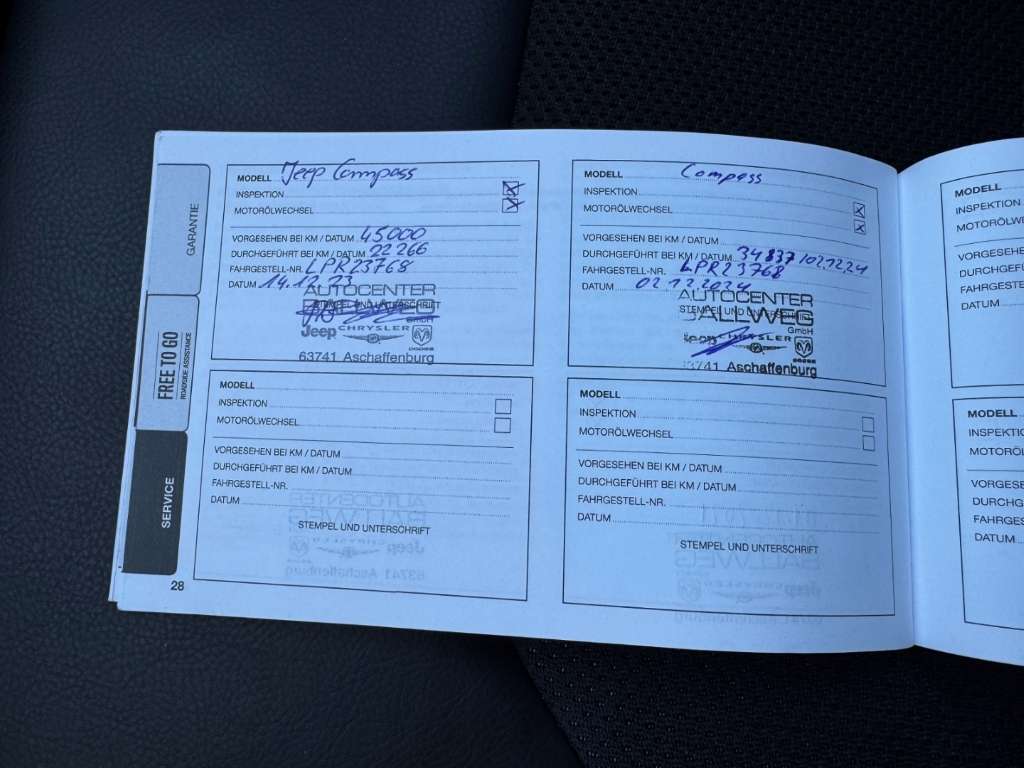 GARANTIE
FREE TO GO
ROADSIDE ASSISTANCE
SERVICE
MODELL Jeep Compass
INSPEKTION
MOTORÖLWECHSEL
VORGESEHEN BEI KM / DATUM 45000
DURCHGEFÜHRT BEI KM / DATUM 22 266
FAHRGESTELL-NR. LPR23768
DATUM 14.12.23
AUTOCENTER
STEMPEL UND UNTERSCHRIFT
GmbH
Jeep CHRYSLER
63741 Aschaffenburg
MODELL Compass
INSPEKTION
MOTORÖLWECHSEL
VORGESEHEN BEI KM / DATUM
DURCHGEFÜHRT BEI KM / DATUM 34837 / 02.12.24
FAHRGESTELL-NR. LPR23768
DATUM 02 12.2024
AUTOCENTER
STEMPEL UND UNTERSCHRIFT
BALLWEG
GmbH
Jeep CHRYSLER
63741 Aschaffenburg
MODELL
INSPEKTION
MOTORÖLWECHSEL
VORGESEHEN BEI KM / DATUM
DURCHGEFÜHRT BEI KM / DATUM
FAHRGESTELL-NR.
DATUM
STEMPEL UND UNTERSCHRIFT
MODELL
INSPEKTION
MOTORÖLWECHSEL
VORGESEHEN BEI KM / DATUM
DURCHGEFÜHRT BEI KM / DATUM
FAHRGESTELL-NR.
DATUM
STEMPEL UND UNTERSCHRIFT
28
MODELL
INSPEKTION
MOTORÖLW
VORGESEHE
DURCHGEF
FAHRGESTE
DATUM
MODELL
INSPEKTIO
MOTORÖL
VORGESE
DURCHG
FAHRGEST
DATUM